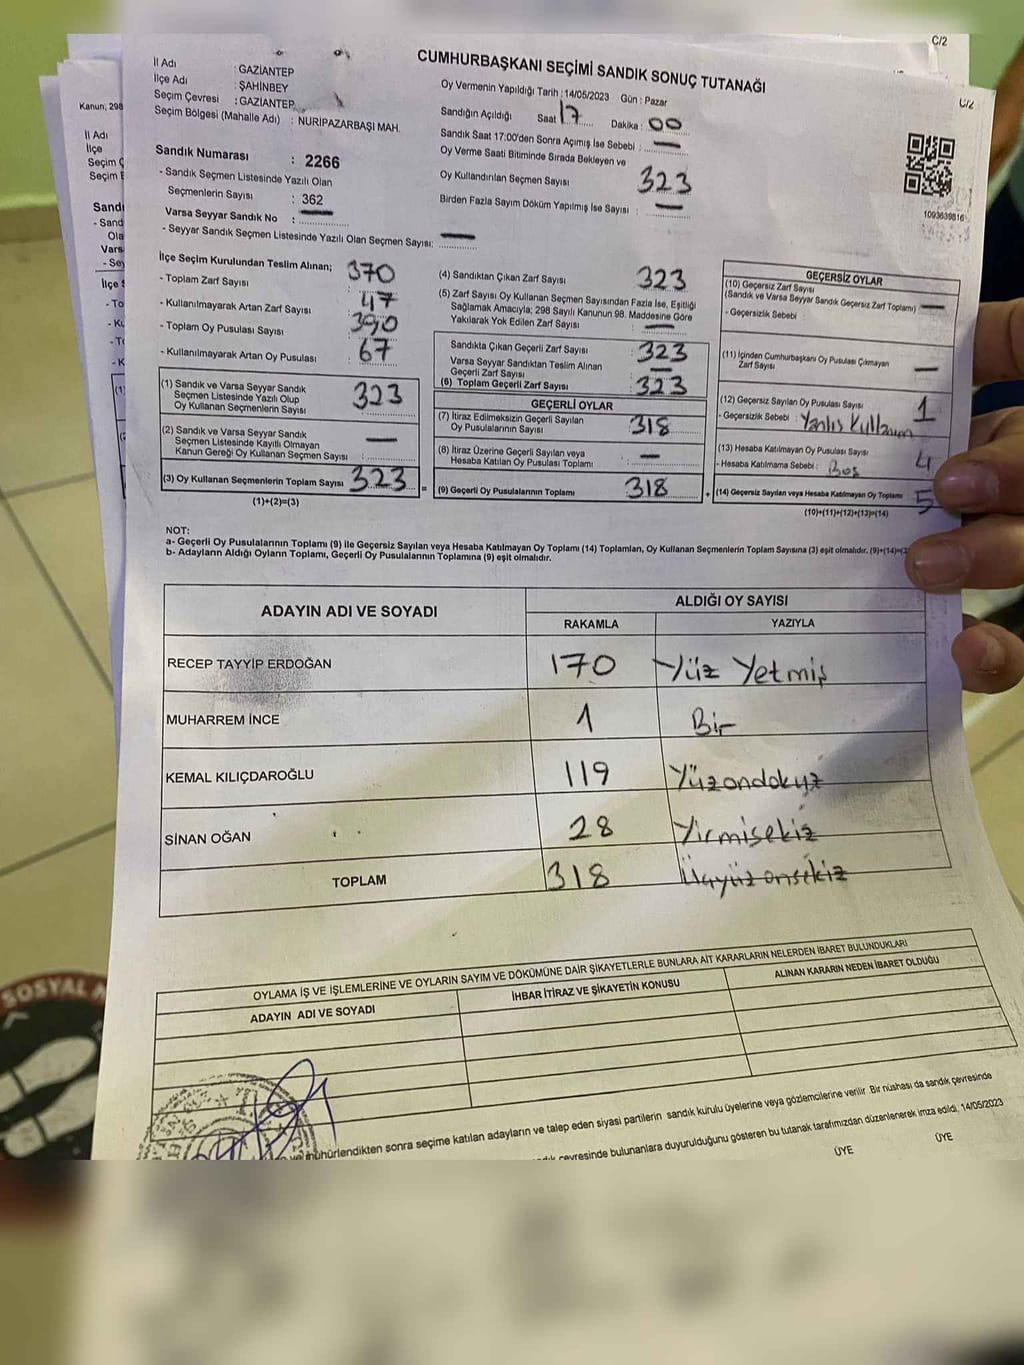 C/2
CUMHURBAŞKANI SEÇİMİ SANDIK SONUÇ TUTANAĞI
İl Adı : GAZİANTEP
İlçe Adı : ŞAHİNBEY
Seçim Çevresi : GAZİANTEP
Seçim Bölgesi (Mahalle Adı) : NURİPAZARBAŞI MAH.
Sandık Numarası : 2266
- Sandık Seçmen Listesinde Yazılı Olan
Seçmenlerin Sayısı : 362
Varsa Seyyar Sandık No : —
- Seyyar Sandık Seçmen Listesinde Yazılı Olan Seçmen Sayısı: —
Oy Vermenin Yapıldığı Tarih : 14/05/2023 Gün : Pazar
Sandığın Açıldığı Saat 17 Dakika : 00
Sandık Saat 17:00'den Sonra Açımış İse Sebebi : —
Oy Verme Saati Bitiminde Sırada Bekleyen ve
Oy Kullandırılan Seçmen Sayısı 323
Birden Fazla Sayım Döküm Yapılmış İse Sayısı : —
C/2
1093639816
İlçe Seçim Kurulundan Teslim Alınan;
- Toplam Zarf Sayısı 370
- Kullanılmayarak Artan Zarf Sayısı : 47
- Toplam Oy Pusulası Sayısı : 390
- Kullanılmayarak Artan Oy Pusulası : 67
(1) Sandık ve Varsa Seyyar Sandık
Seçmen Listesinde Yazılı Olup
Oy Kullanan Seçmenlerin Sayısı 323
(2) Sandık ve Varsa Seyyar Sandık
Seçmen Listesinde Kayıtlı Olmayan
Kanun Gereği Oy Kullanan Seçmen Sayısı : —
(3) Oy Kullanan Seçmenlerin Toplam Sayısı 323 =
(1)+(2)=(3)
(4) Sandıktan Çıkan Zarf Sayısı 323
(5) Zarf Sayısı Oy Kullanan Seçmen Sayısından Fazla İse, Eşitliği
Sağlamak Amacıyla; 298 Sayılı Kanunun 98. Maddesine Göre
Yakılarak Yok Edilen Zarf Sayısı : —
Sandıkta Çıkan Geçerli Zarf Sayısı : 323
Varsa Seyyar Sandıktan Teslim Alınan
Geçerli Zarf Sayısı : —
(6) Toplam Geçerli Zarf Sayısı : 323
GEÇERLİ OYLAR
(7) İtiraz Edilmeksizin Geçerli Sayılan
Oy Pusulalarının Sayısı 318
(8) İtiraz Üzerine Geçerli Sayılan veya
Hesaba Katılan Oy Pusulası Toplamı : —
(9) Geçerli Oy Pusulalarının Toplamı 318 +
GEÇERSİZ OYLAR
(10) Geçersiz Zarf Sayısı
(Sandık ve Varsa Seyyar Sandık Geçersiz Zarf Toplamı) —
- Geçersizlik Sebebi
(11) İçinden Cumhurbaşkanı Oy Pusulası Çıkmayan
Zarf Sayısı —
(12) Geçersiz Sayılan Oy Pusulası Sayısı 1
- Geçersizlik Sebebi : Yanlış Kullanım
(13) Hesaba Katılmayan Oy Pusulası Sayısı
- Hesaba Katılmama Sebebi : Boş 4
(14) Geçersiz Sayılan veya Hesaba Katılmayan Oy Toplamı 5
(10)+(11)+(12)+(13)=(14)
NOT:
a- Geçerli Oy Pusulalarının Toplamı (9) ile Geçersiz Sayılan veya Hesaba Katılmayan Oy Toplamı (14) Toplamları, Oy Kullanan Seçmenlerin Toplam Sayısına (3) eşit olmalıdır. (9)+(14)=(3
b- Adayların Aldığı Oyların Toplamı, Geçerli Oy Pusulalarının Toplamına (9) eşit olmalıdır.
ADAYIN ADI VE SOYADI ALDIĞI OY SAYISI
RAKAMLA YAZIYLA
RECEP TAYYİP ERDOĞAN 170 Yüz Yetmiş
MUHARREM İNCE 1 Bir
KEMAL KILIÇDAROĞLU 119 Yüzondokuz
SİNAN OĞAN 28 Yirmisekiz
TOPLAM 318 Üçyüzonsekiz
OYLAMA İŞ VE İŞLEMLERİNE VE OYLARIN SAYIM VE DÖKÜMÜNE DAİR ŞİKAYETLERLE BUNLARA AİT KARARLARIN NELERDEN İBARET BULUNDUKLARI
ADAYIN ADI VE SOYADI İHBAR İTİRAZ VE ŞİKAYETİN KONUSU ALINAN KARARIN NEDEN İBARET OLDUĞU
ve mühürlendikten sonra seçime katılan adayların ve talep eden siyasi partilerin sandık kurulu üyelerine veya gözlemcilerine verilir. Bir nüshası da sandık çevresinde
çevresinde bulunanlara duyurulduğunu gösteren bu tutanak tarafımızdan düzenlenerek imza edildi. 14/05/2023
ÜYE ÜYE
Kanun; 298
İl Adı
İlçe
Seçim Ç
Seçim B
Sandı
- Sand
Ola
Vars
- Sey
İlçe S
- To
- Ku
- To
- K
(1)
SOSYAL M